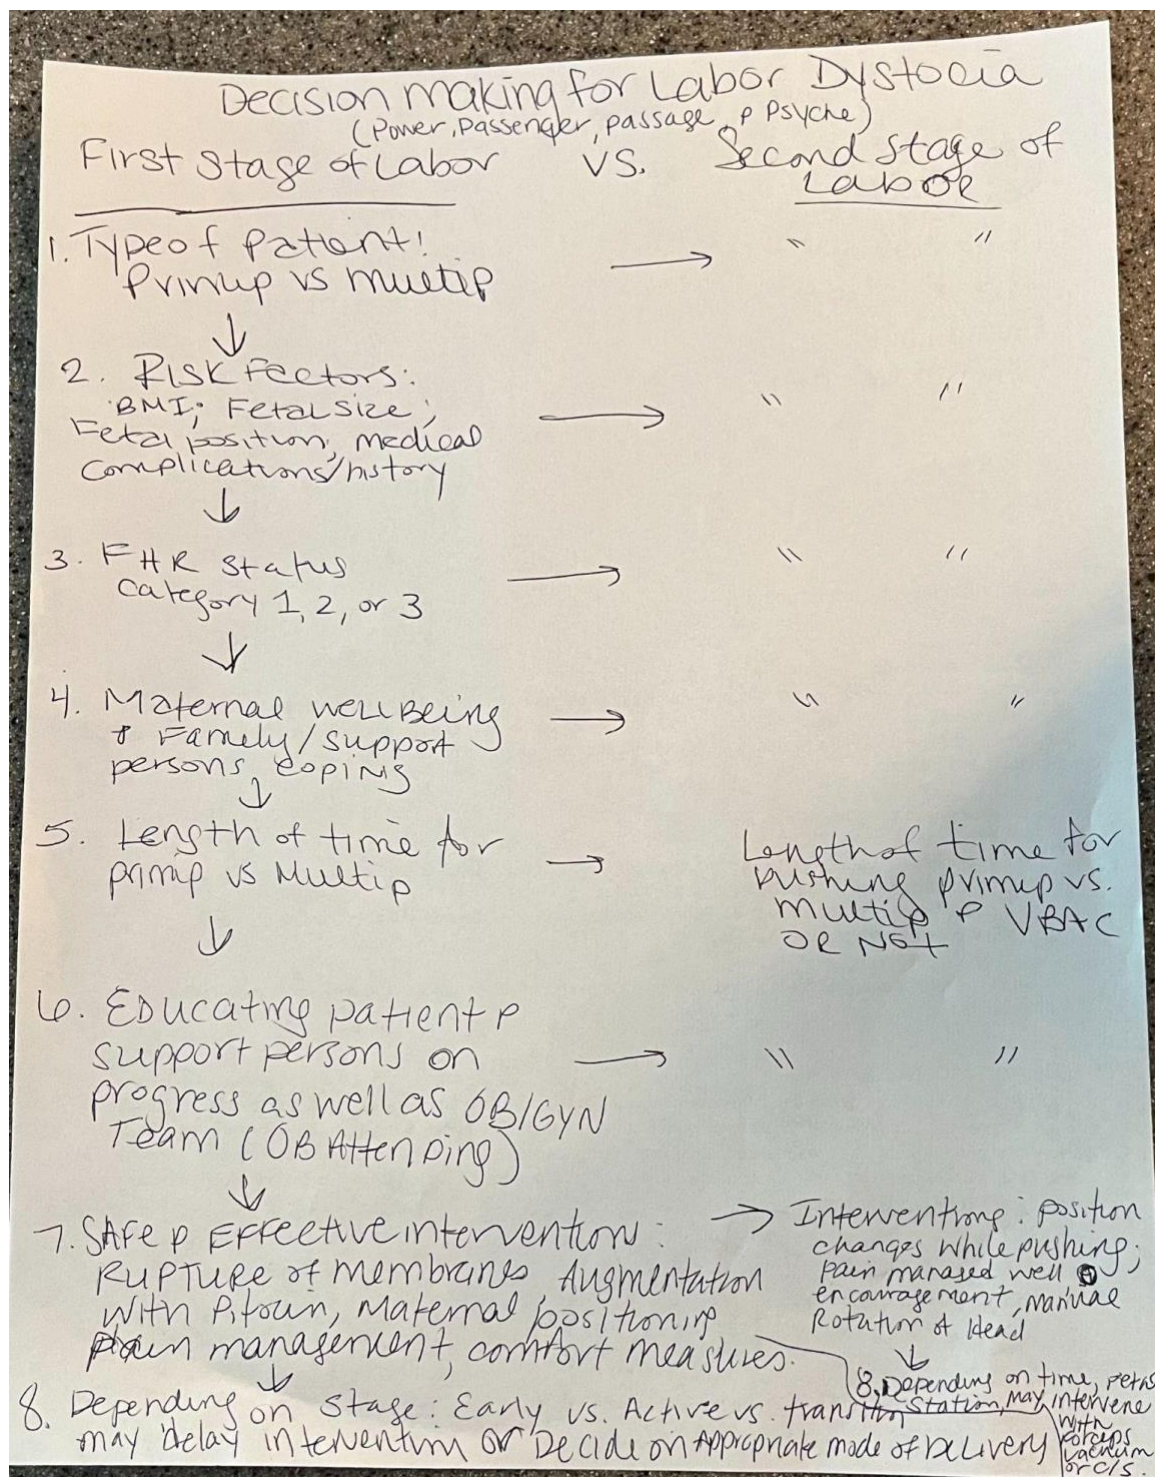 Decision making for Labor Dystocia
(Power, Passenger, passage & Psyche)
First Stage of Labor VS. Second Stage of
Labor
1. Type of Patient:
Primip vs multip → " "
↓
2. Risk Factors:
BMI; Fetal size;
Fetal position, medical
complications/history → " "
↓
3. FHR status
Category 1, 2, or 3 → " "
↓
4. Maternal well Being
& Family/support
persons, coping → " "
↓
5. Length of time for
primip vs Multip →
Length of time for
pushing primip vs.
multip & VBAC
OR Not
↓
6. Educating patient &
support persons on
progress as well as OB/GYN
Team (OB Attending) → " "
↓
7. SAFE & Effective intervention:
Rupture of membranes, Augmentation
with Pitocin, Maternal positioning
pain management, comfort measures.
→ Interventions: position
changes while pushing;
pain managed well
encouragement, Manual
Rotation of Head
↓
8. Depending on Stage: Early vs. Active vs. transition
may delay intervention or Decide on Appropriate mode of Delivery
8. Depending on time, fetal
Station, may intervene
with
forceps
vacuum
or c/s.